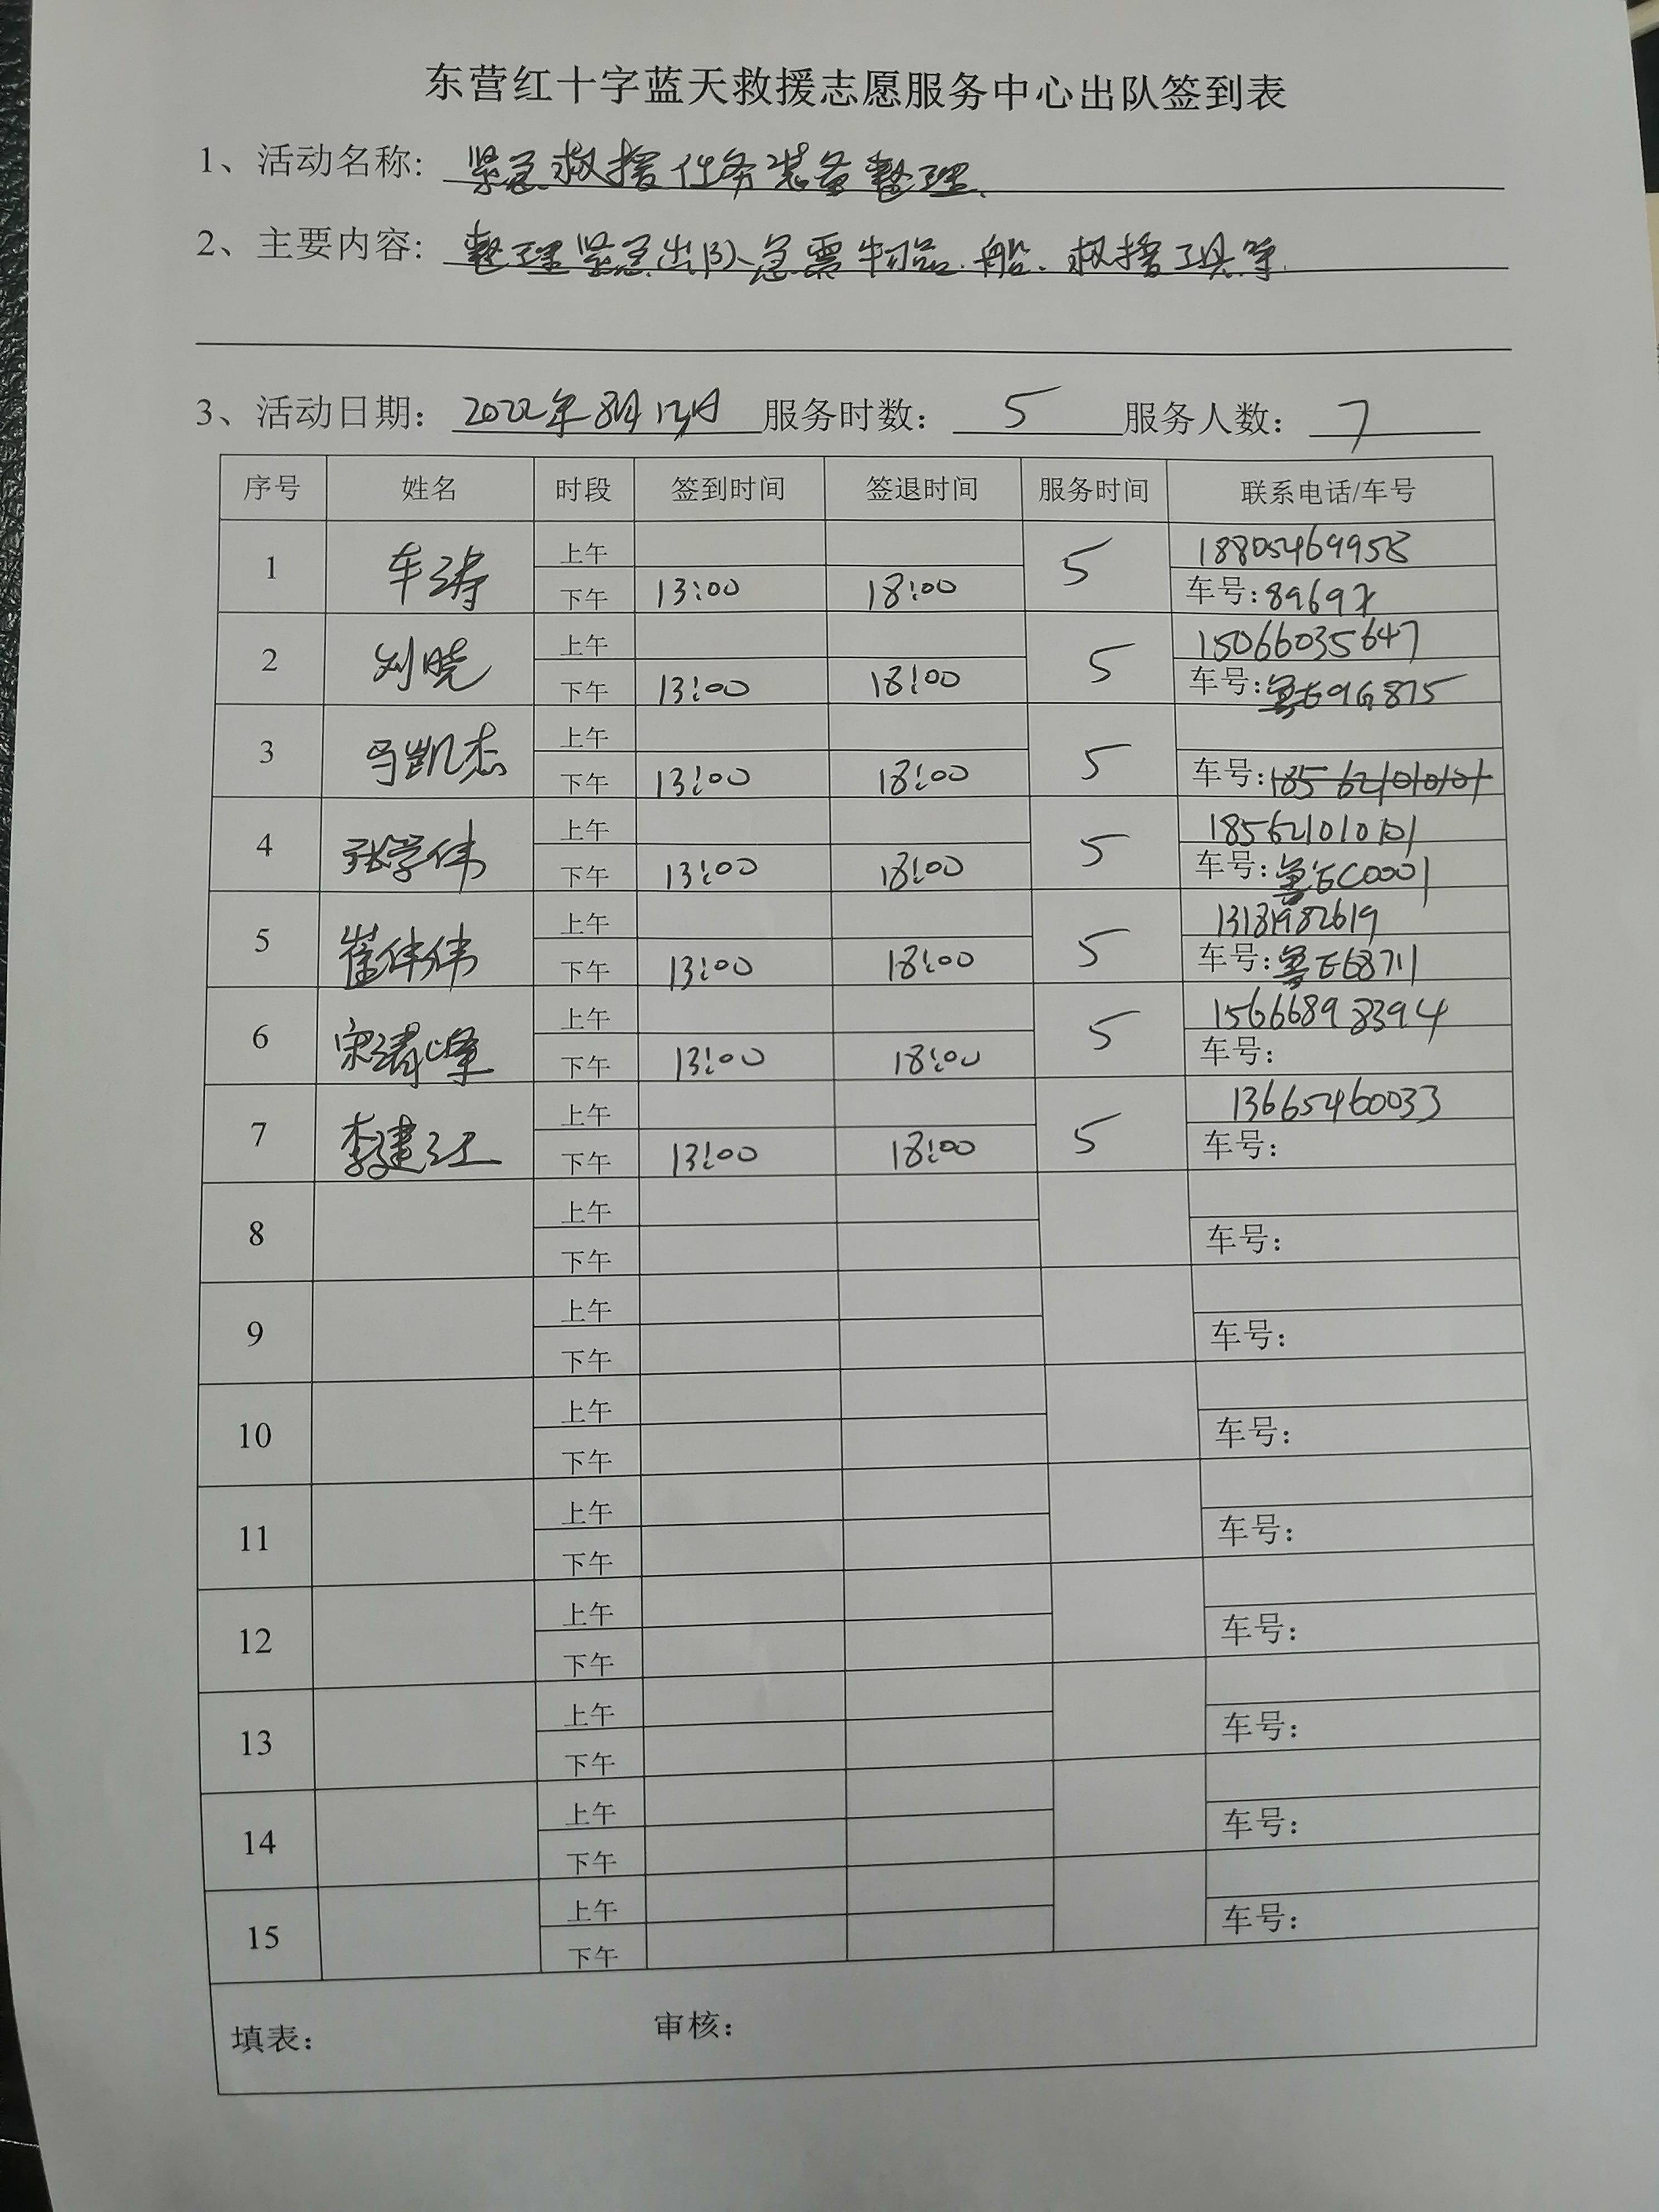 东营红十字蓝天救援志愿服务中心出队签到表
1、活动名称：紧急救援任务装备整理.
2、主要内容：整理紧急出队急需物品.船.救援工具等.
3、活动日期：2022年8月12日 服务时数：5 服务人数：7
序号 姓名 时段 签到时间 签退时间 服务时间 联系电话/车号
1 车涛 上午 5 18805469958
下午 13:00 18:00 车号：8969
2 刘晓 上午 5 15066035647
下午 13:00 18:00 车号：鲁E9G875
3 马凯杰 上午 5
下午 13:00 18:00 车号：18562101010
4 张学伟 上午 5 18562101010
下午 13:00 18:00 车号：鲁EC0001
5 崔伟伟 上午 5 13181982619
下午 13:00 18:00 车号：鲁E68711
6 宋清峰 上午 5 15666898394
下午 13:00 18:00 车号：
7 李建江 上午 5 13665460033
下午 13:00 18:00 车号：
8 上午
下午 车号：
9 上午
下午 车号：
10 上午
下午 车号：
11 上午
下午 车号：
12 上午
下午 车号：
13 上午
下午 车号：
14 上午
下午 车号：
15 上午
下午 车号：
填表： 审核：